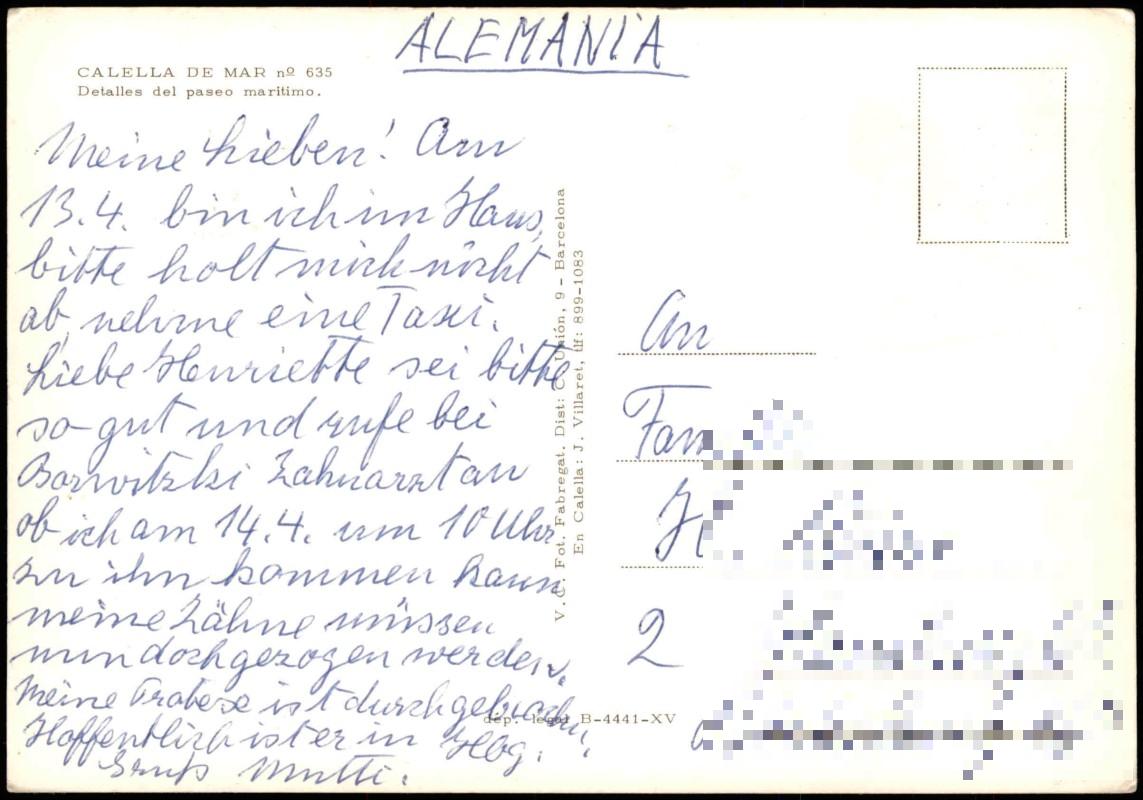 ALEMANIA
CALELLA DE MAR nº 635
Detalles del paseo maritimo.
Meine Lieben! Am
13.4. bin ich im Haus,
bitte holt mich nicht
ab, nehme eine Taxi.
Liebe Henriette sei bitte
so gut und rufe bei
Borwitzki Zahnarzt an
ob ich am 14.4. um 10 Uhr
zu ihm kommen kann
meine Zähne müssen
nun doch gezogen werden.
Meine Protese ist durchgebrochen,
Hoffentlich ist er in Hbg.
Gruß Mutti.
V. C. Fot. Fabregat. Dist: Unión, 9 - Barcelona
En Calella: J. Villaret, tlf: 899-1083
dep. legal B-4441-XV
An
Fam
2